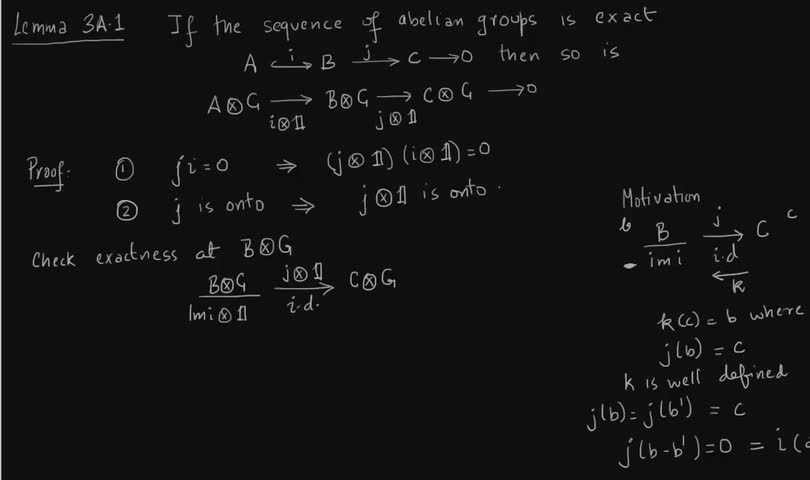 Lemma 3A.1 If the sequence of abelian groups is exact
A —i→ B —j→ C → 0 then so is
A⊗G → B⊗G → C⊗G → 0
i⊗𝟙 j⊗𝟙
Proof: ① ji=0 ⇒ (j⊗𝟙)(i⊗𝟙)=0
② j is onto ⇒ j⊗𝟙 is onto.
Check exactness at B⊗G
B⊗G j⊗𝟙 C⊗G
Im i⊗𝟙 i.d.
Motivation
b B j C c
im i i.d
k
k(c) = b where
j(b) = c
k is well defined
j(b) = j(b') = c
j(b-b')=0 = i(